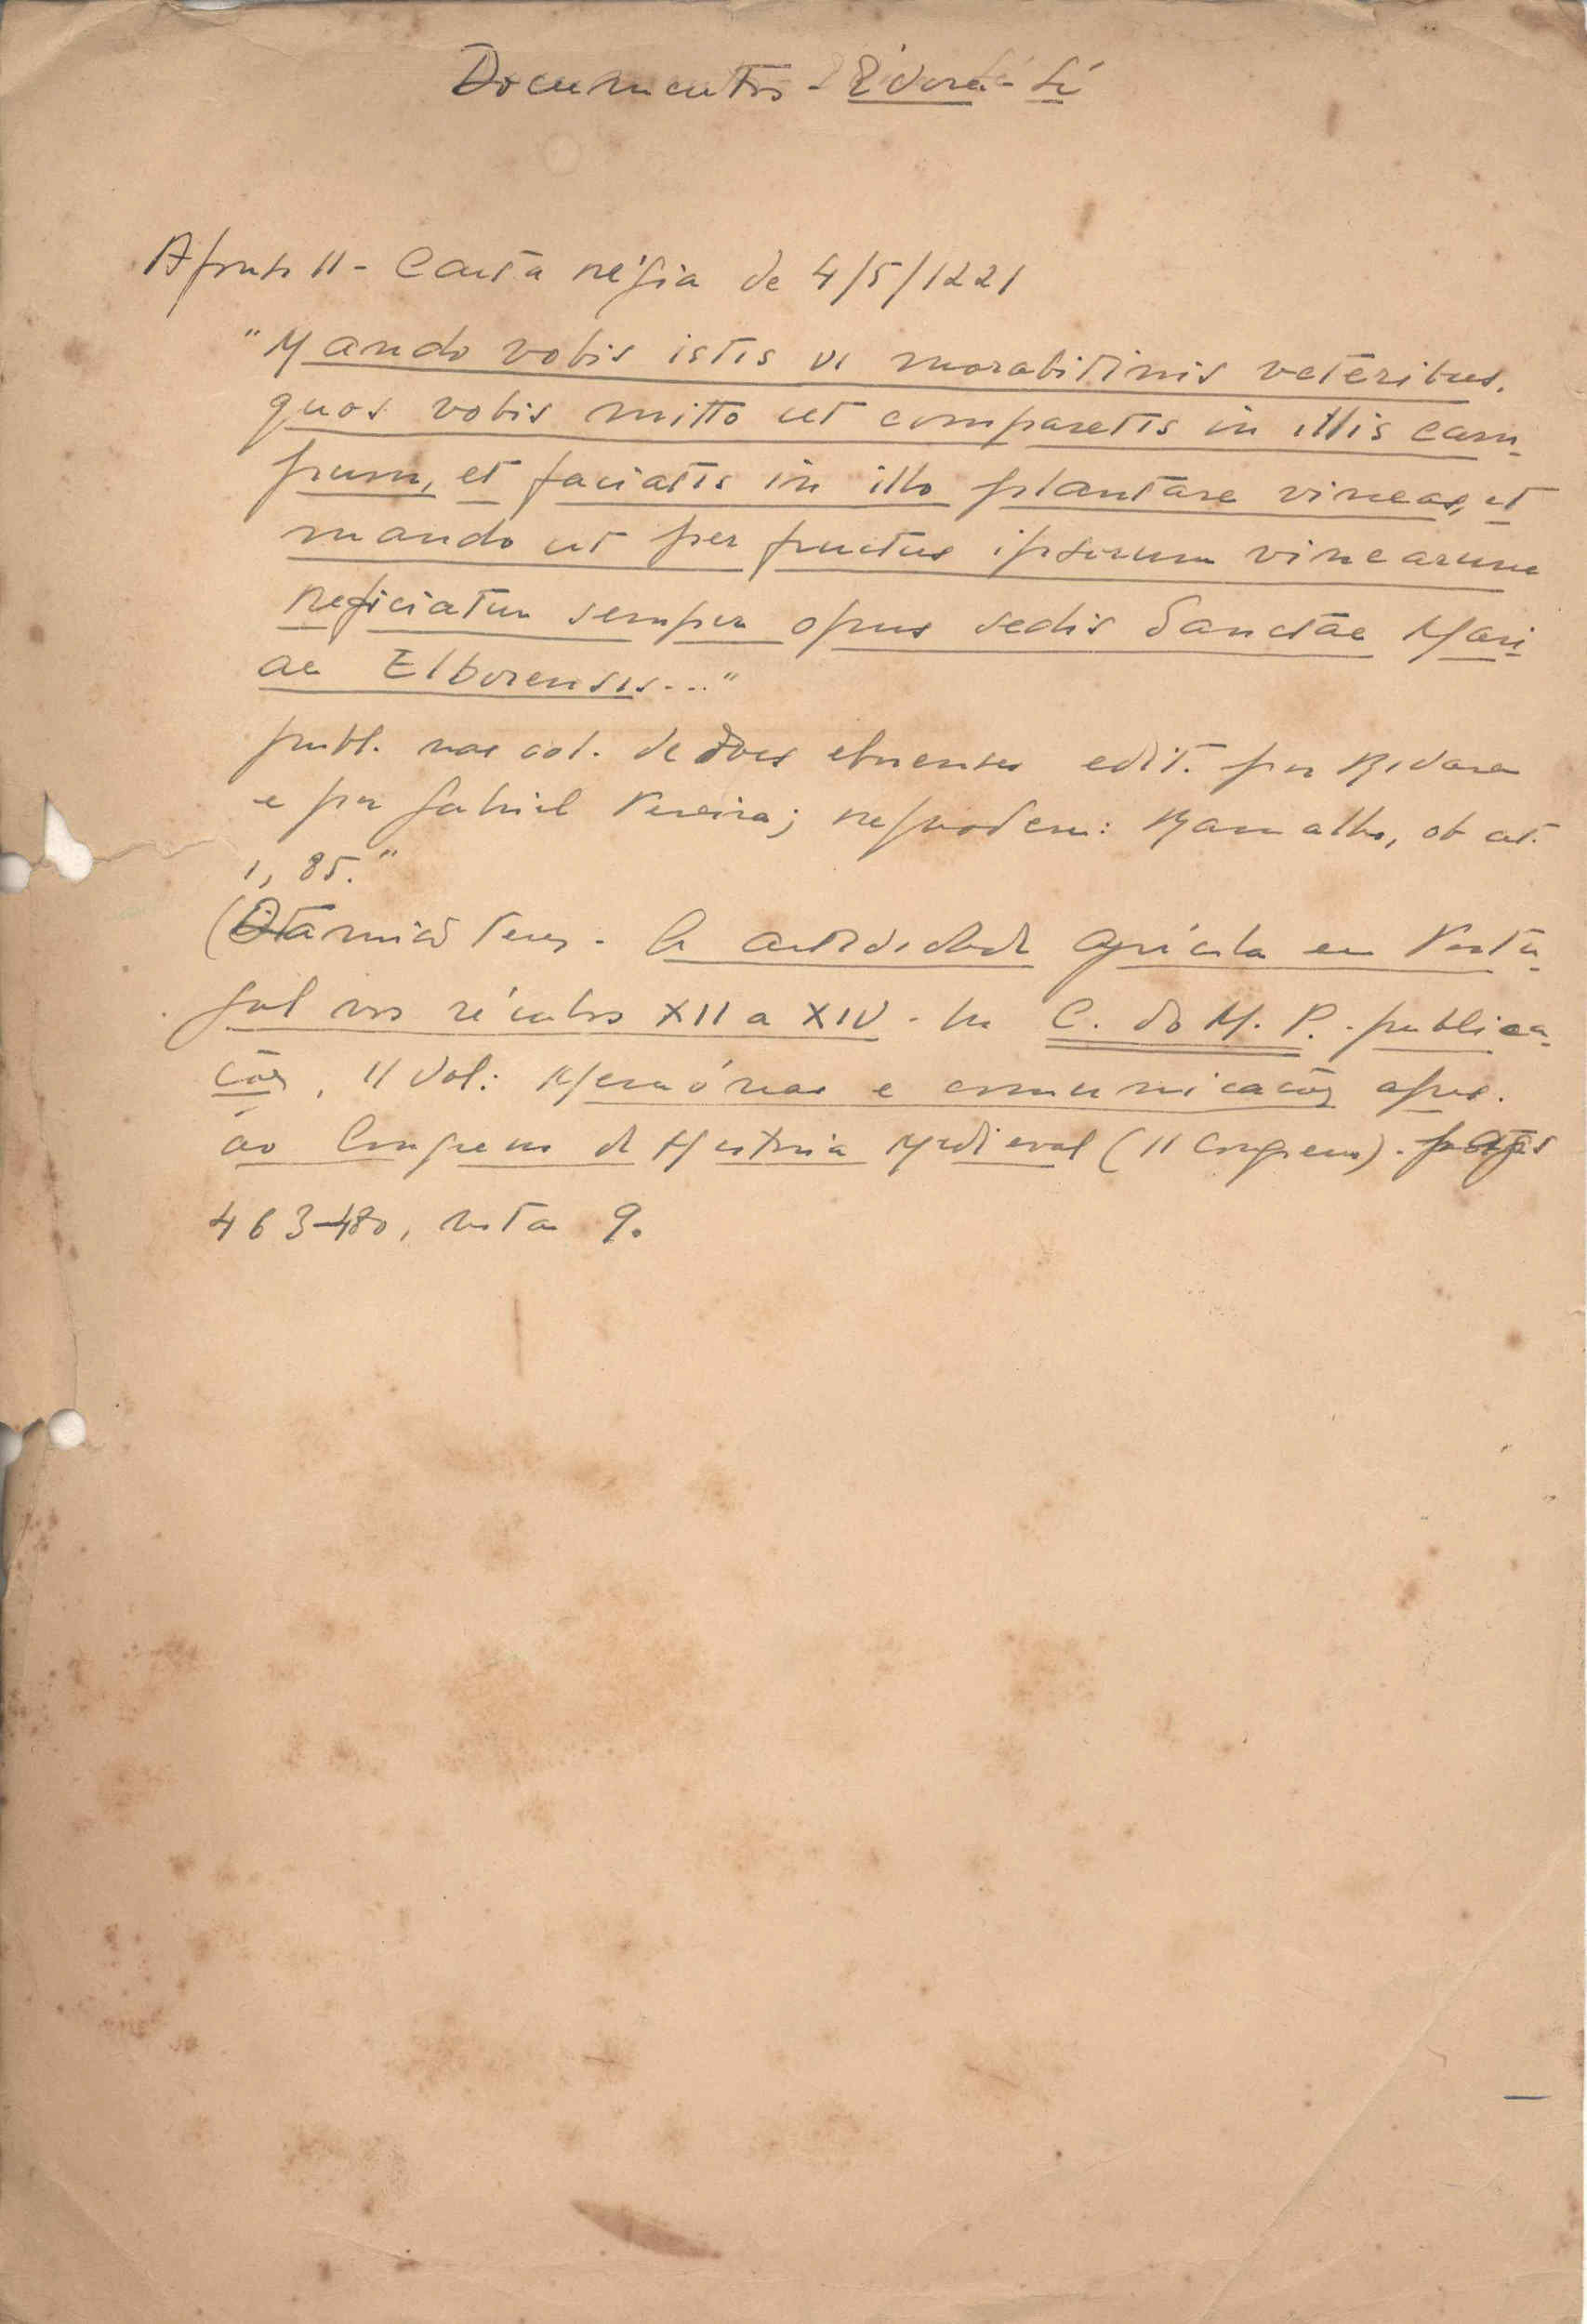 Documentos - Évora - Sé
Afonso II - Carta régia de 4/5/1221
"Mando vobis istis VI morabitinis veteribus,
quos vobis mitto ut comparetis in illis cam-
pum, et faciatis in illo plantare vineas, et
mando ut per fructus ipsorum vinearum
reficiatur semper opus sedis Sanctae Mari
ae Elborensis..."
publ. nas col. de docs eborenses edit. por Rivara
e por Gabriel Pereira; reproduz: Ramalho, ob cit.
1, 85."
( Peres - A actividade agrícola em Portu-
gal nos séculos XII a XIV - In C. do M. P. - publica-
ções, II Vol: Memórias e comunicações apres.
ao Congresso de História Medieval (II Congresso). págs
463-480, nota 9.